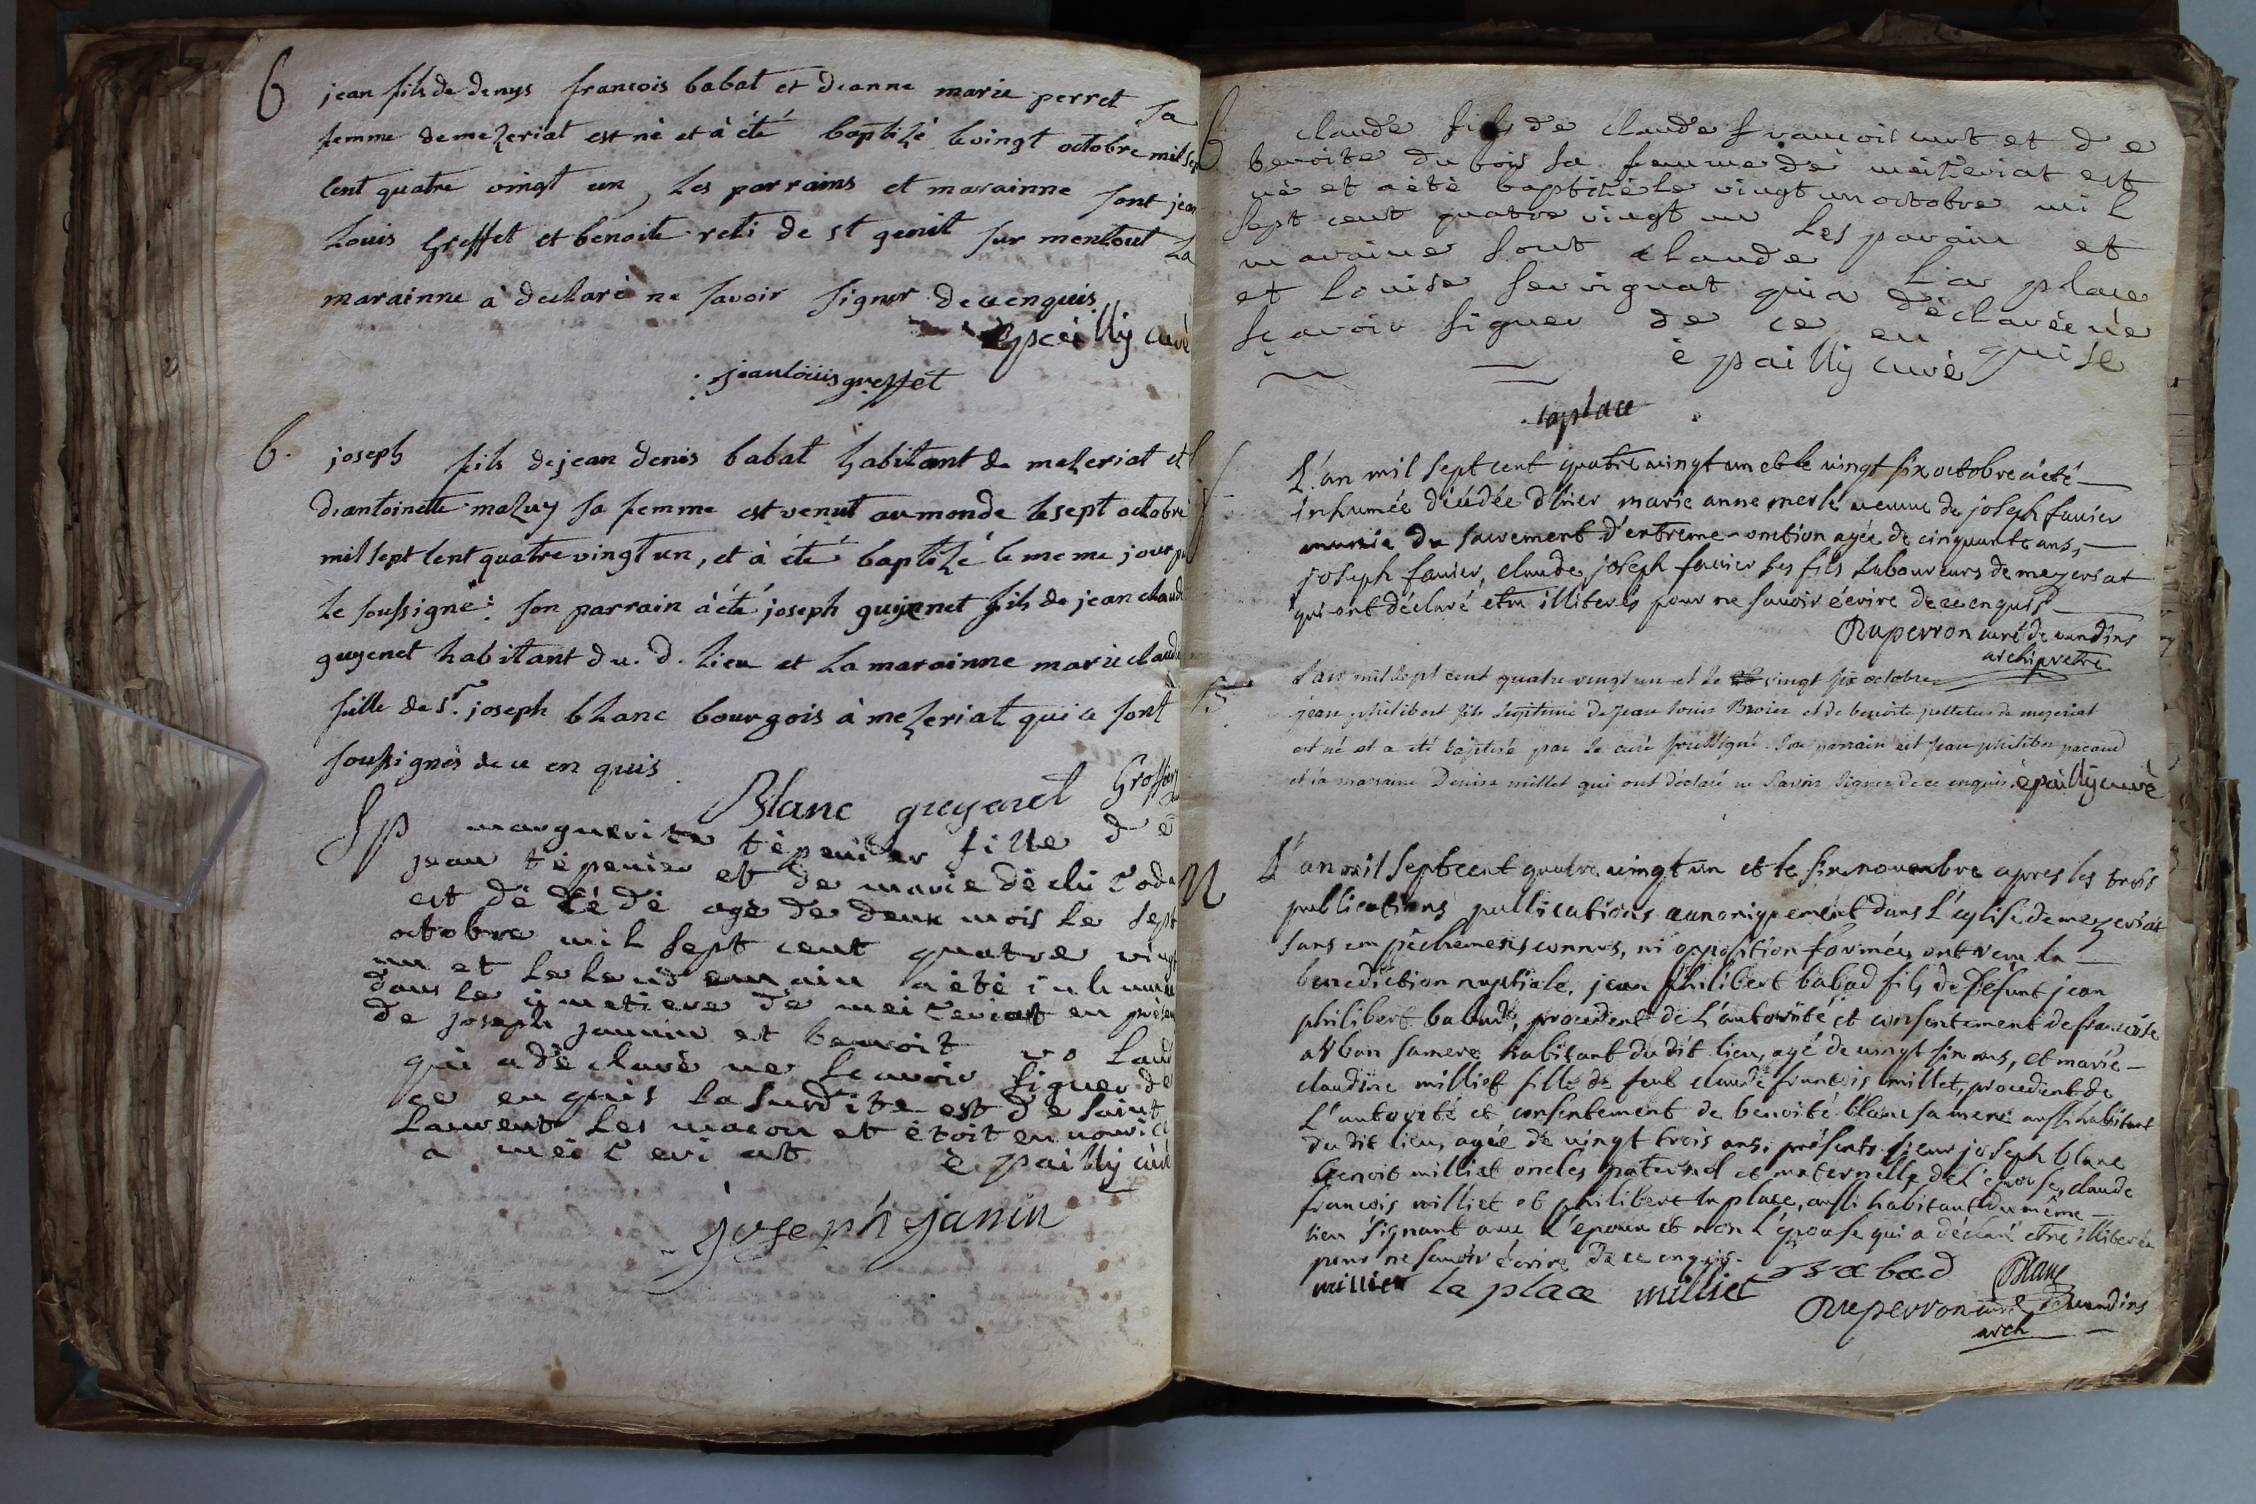 B jean fils de denys francois babat et deanne marie perret sa
femme de mezeriat est né et à été baptizé le vingt octobre mil sep
cent quatre vingt un, les parrains et marainne sont jean
Louis Greffet et benoite reti de st genit sur mentout La
marainne à declaré ne savoir signer de ce enquis
épailly curé
jean louis greffet
B. joseph fils de jean denis babat habitant de mezeriat et
d'antoinette mazuy sa femme est venut au monde le sept octobre
mil sept cent quatre vingt un, et à été baptizé le meme jour par
le soussigné: son parrain à été joseph guyenet fils de jean claude
guyenet habitant du. d. lieu et la marainne marie claude
fille de sr. joseph blanc bourgois à mezeriat qui ce sont
soussignés de ce en quis
Blanc guyenet
Sp marguerite tépenier fille de
jean tépenier et de marie
est dé cé dé agé de deux mois le sept
octobre mil sept cent quatre vingt
un et le lend emain a été inhumé
dans le cimetiere de meizeriat en présen
de joseph jannin et benoit
qui a dé claré ne scavoir signer de
ce en quis la surdite est de saint
laurent les macon et étoit en nourice
a mei z eri at é pailly curé
joseph janin
B claude fils de claude francois curt et de
benoite du bois sa femme de meizeriat est
né et a été baptizé le vingt un octobre mil
sept cent quatre vingt un les parain et
maraine sont claude La place
et Louise servignat qui a déclarée ne
sçavoir signer de ce en quise
é pailly curé
laplace
S. L'an mil sept cent quatre vingt un et le vingt six octobre a été
inhumée décédée d'hier marie anne merle veuve de joseph favier
munie du sacrement d'extreme-onction agée de cinquante ans,
joseph favier, claude joseph favier ses fils laboureurs de mezeriat
qui ont déclaré etre illiterés pour ne savoir écrire de ce enquis
Duperron curé de vandins
archipretre
B. L'an mil sept cent quatre vingt un et le vingt six octobre
jean philibert fils legitime de jean louis Brvier et de benoite pelletier de mezeriat
est né et a été baptisé par le curé soussigné. Son parrain est jean philibert pacaud
et la maraine Denise millet qui ont déclaré ne savoir signer de ce enquis. é pailly curé
N L'an mil sept cent quatre vingt un et le six novembre apres les trois
publications publications canoniquement dans l'eglise de mezeriat
sans empêchemens connus, ni opposition formée, ont reçu la
benediction nuptiale, jean philibert babad fils de defunt jean
philibert babad, procedent de l'autorité et consentement de francoise
alban sa mere habitant du dit lieu, agé de vingt six ans, et marie
claudine milliet fille de feu claude francois milliet, procedent de
l'autorité et consentement de benoite blanc sa mere aussi habitant
du dit lieu, agée de vingt trois ans, présents sieur joseph blanc
benoit milliet oncles paternel et maternelle de l'epouse, claude
francois milliet et philibert la place, aussi habitant du même
lieu signant avec l'epoux et non l'épouse qui a déclaré etre illiterée
pour ne savoir écrire de ce enquis.
milliet la place milliet Babad Blanc
Duperron curé de vandins
arch